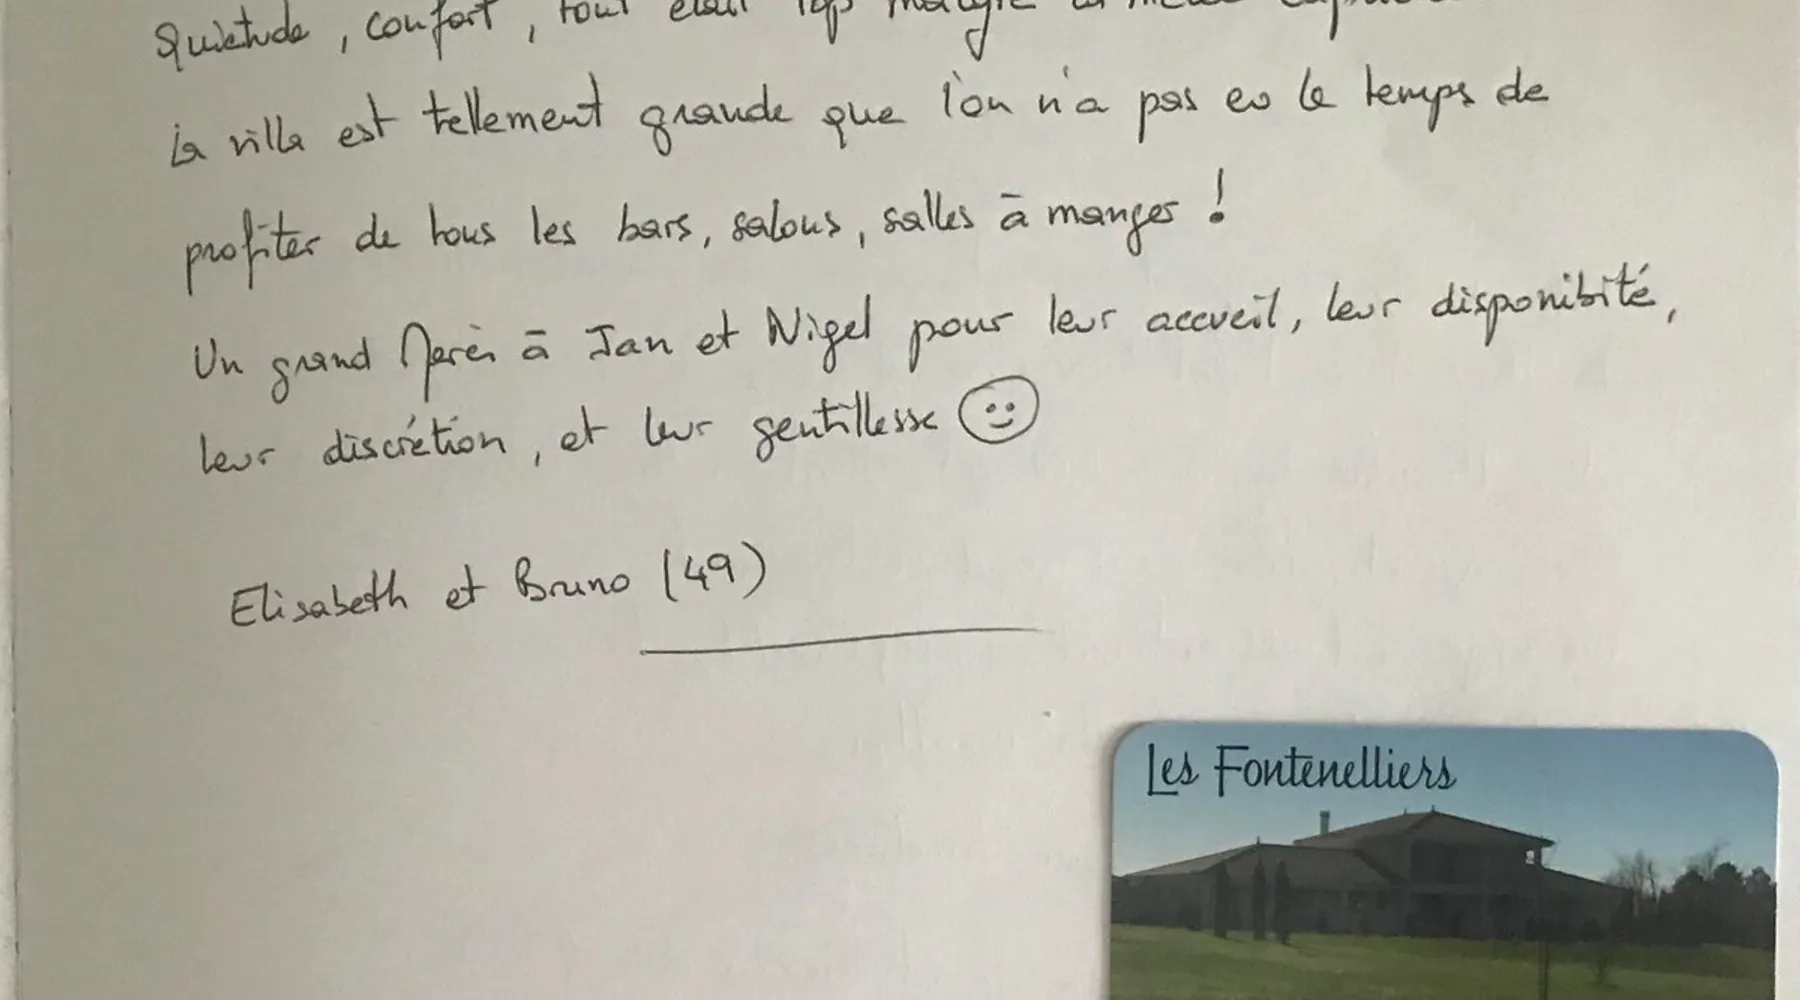 Quiétude, confort, tout était top malgré la météo
la villa est tellement grande que l'on n'a pas eu le temps de
profiter de tous les bars, salons, salles à manger !
Un grand Merci à Jan et Nigel pour leur accueil, leur disponibité,
leur discrétion, et leur gentillesse
Elisabeth et Bruno (49)
Les Fontenelliers